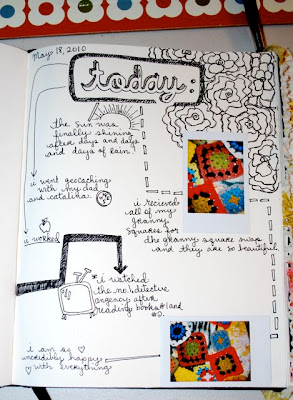 May 18, 2010
today:
the sun was
finally shining
after days and days
and days of rain.
i went geocaching
with my dad
and catalina.
i recieved
all of my
granny
squares for
the granny square swap
and they are so beautiful.
i worked
i watched
the no.1 detective
angency after
reading books #1 and
#2.
i am so
incredibly happy
with everything